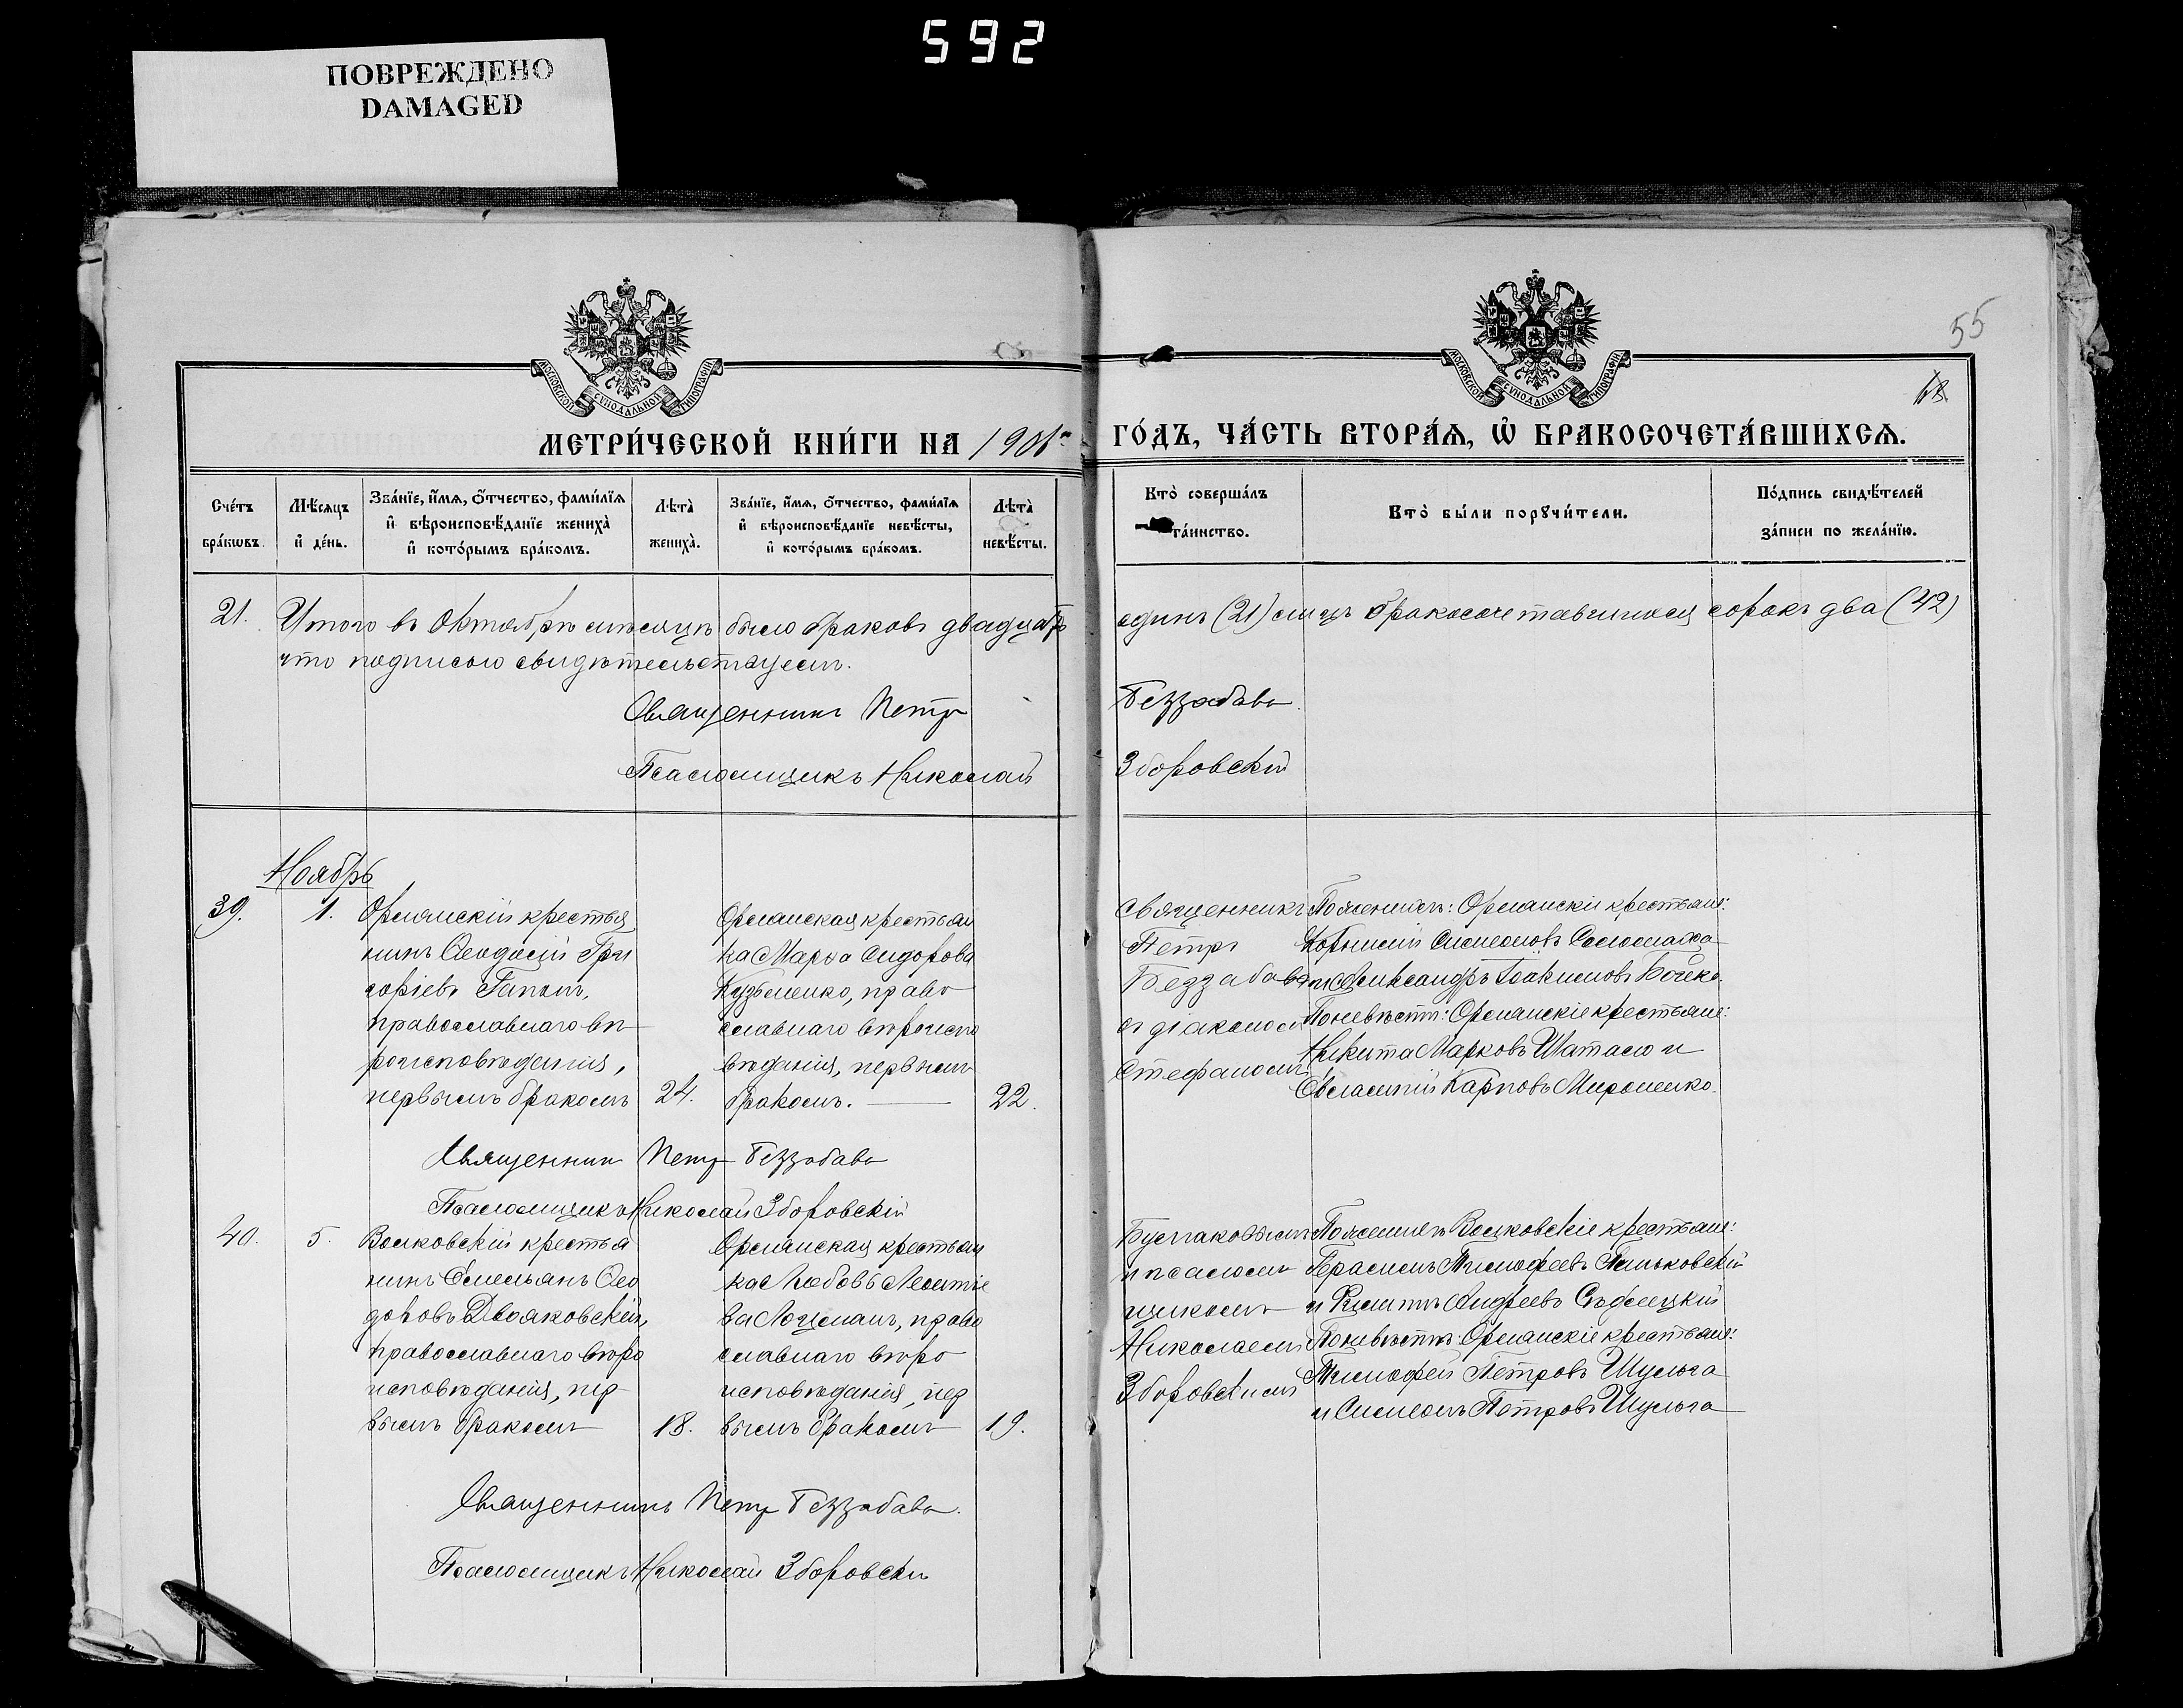 592
ПОВРЕЖДЕНО
DAMAGED
55
МОСКОВСКОЙ СѴНОДАЛЬНОЙ ТИПОГРАФІИ
МОСКОВСКОЙ СѴНОДАЛЬНОЙ ТИПОГРАФІИ
МЕТРИ́ЧЕСКОЙ КНИ́ГИ НА 1901й ГО́ДЪ, ЧА́СТЬ ВТОРА́Ѧ, Ѡ҆ БРАКОСОЧЕТА́ВШИХСѦ.
Сче́тъ
бра́кѡвъ.
Мѣ́сяцъ
и҆ де́нь.
Зва́нїе, и҆́мѧ, ѻ҆́тчество, фами́лїѧ
и҆ вѣроисповѣ́данїе жениха̀
и҆ кото́рымъ бра́комъ.
Лѣта̀
жениха̀.
Зва́нїе, и҆́мѧ, ѻ҆́тчество, фами́лїѧ
и҆ вѣроисповѣ́данїе невѣ́сты,
и҆ кото́рымъ бра́комъ.
Лѣта̀
невѣ́сты.
Кто̀ соверша́лъ
та́инство.
Кто̀ бы́ли порꙋчи́тели.
По́дпись свидѣ́телей
за́писи по жела́нїю.
21. Итого въ Октябрѣ мѣсяцѣ было браковъ двадцать одинъ (21) лицъ бракосочетавшихся сорокъ два (42)
что подписью свидѣтельствуемъ.
Священникъ Петръ Беззабава
Псаломщикъ Николай Зборовскій
Ноябрь
39. 1.
Орлянскій крестья
нинъ Ѳеодосій Гри
горіевъ Гапонъ,
православнаго вѣ
роисповѣданія,
первымъ бракомъ
24.
Орлянская крестьян
ка Марѳа Сидорова
Кузьменко, право
славнаго вѣроиспо
вѣданія, первымъ
бракомъ.
22.
Священникъ
Петръ
Беззабава
съ діакономъ
Стефаномъ
По женихѣ: Орлянскіе крестьяне:
Корнилій Симеоновъ Соломаха
и Александръ Іоакимовъ Бочко.
По невѣстѣ: Орлянскіе крестьяне:
Никита Марковъ Шатало и
Евлампій Карповъ Мироненко.
Священникъ Петръ Беззабава
Псаломщикъ Николай Зборовскій
40. 5.
Волковскій крестья
нинъ Емельянъ Ѳео
православнаго вѣро
исповѣданія, пер
вымъ бракомъ
18.
Орлянская крестьян
ка Любовь Леонтіе
ва Лоцманъ, право
славнаго вѣро
исповѣданія, пер
вымъ бракомъ
19.
и псалом
щикомъ
Николаемъ
Зборовскимъ
По женихѣ Волковскіе крестьяне:
Герасимъ Тимофеевъ
По невѣстѣ: Орлянскіе крестьяне:
Тимофей Петровъ Шульга
и Симеонъ Петровъ Шульга
Священникъ Петръ Беззабава.
Псаломщикъ Николай Зборовскій